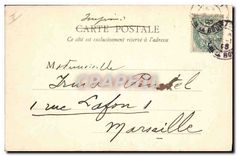 Imprimé
CARTE POSTALE
Ce côté est exclusivement réservé à l'adresse
Mademoiselle
1 rue Lafon 1
Marseille